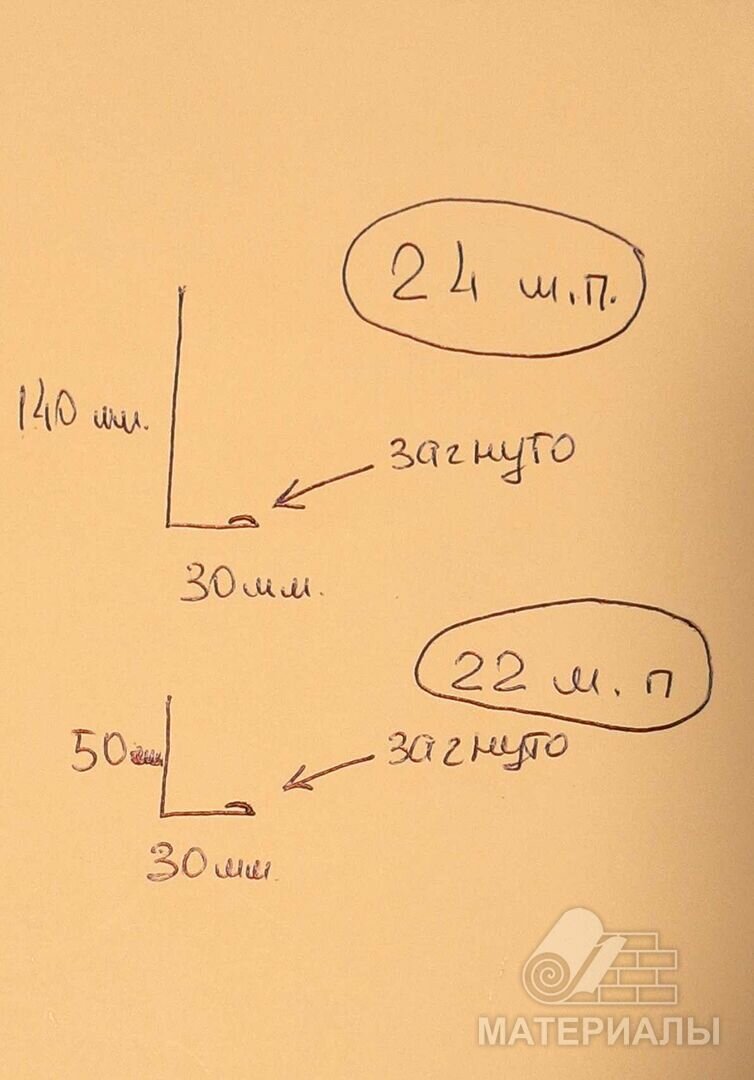 24 м.п.
140 мм.
загнуто
30мм.
22 м.п
50мм
загнуто
30мм.
МАТЕРИАЛЫ